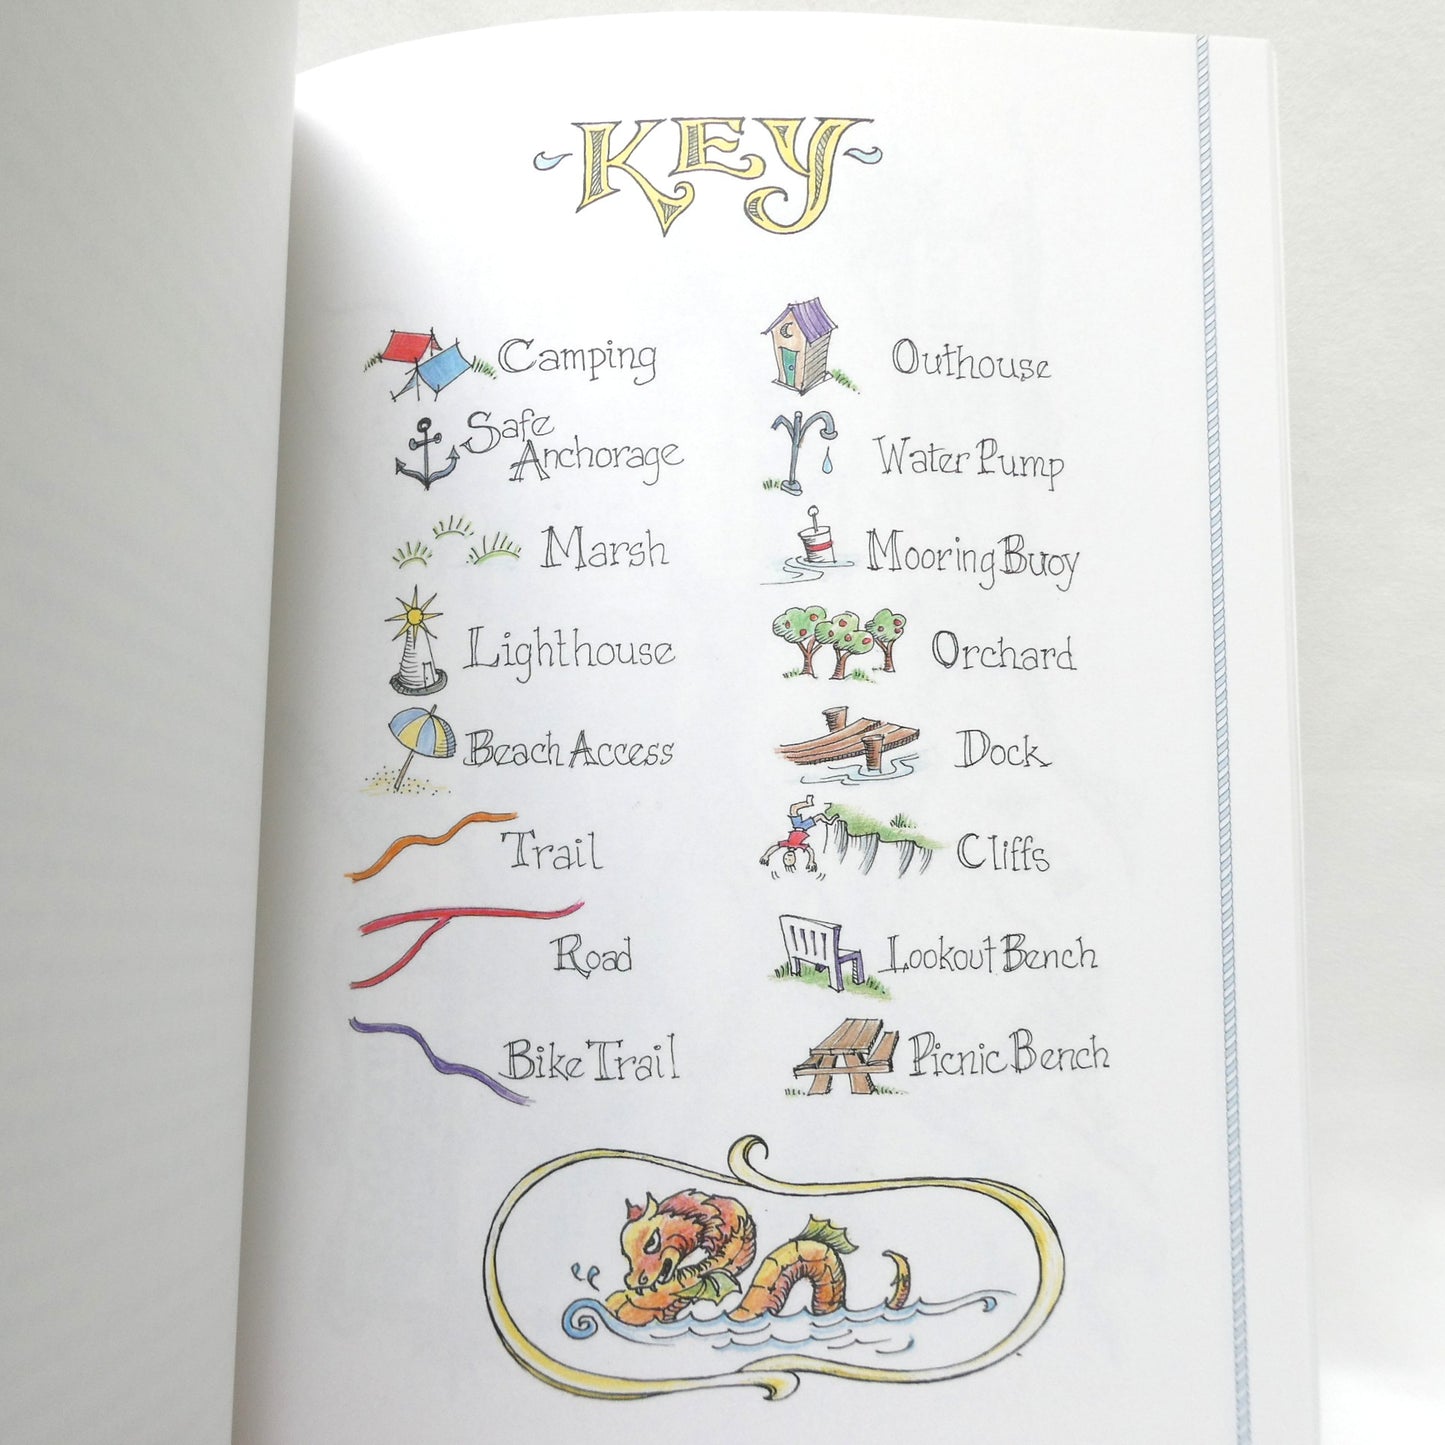 KEY
Camping
Safe
Anchorage
Marsh
Lighthouse
Beach Access
Trail
Road
Bike Trail
Outhouse
Water Pump
Mooring Buoy
Orchard
Dock
Cliffs
Lookout Bench
Picnic Bench